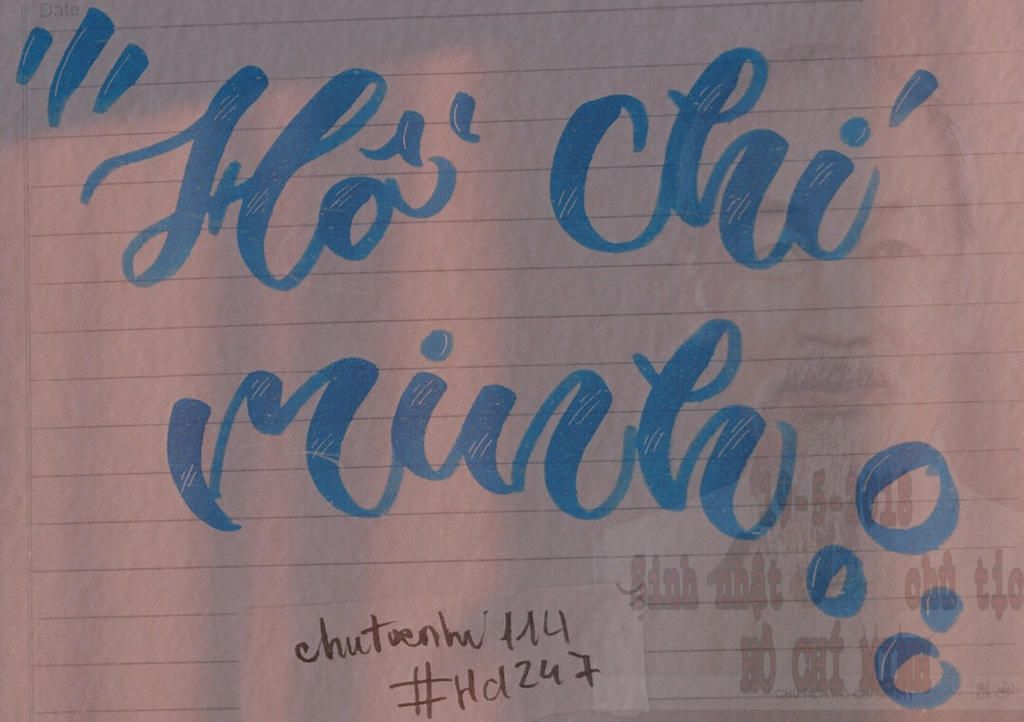 Date
Hồ Chí
minh
19-5-2018
Sinh nhật chủ tịc
HỒ CHÍ MINH
#Hd247